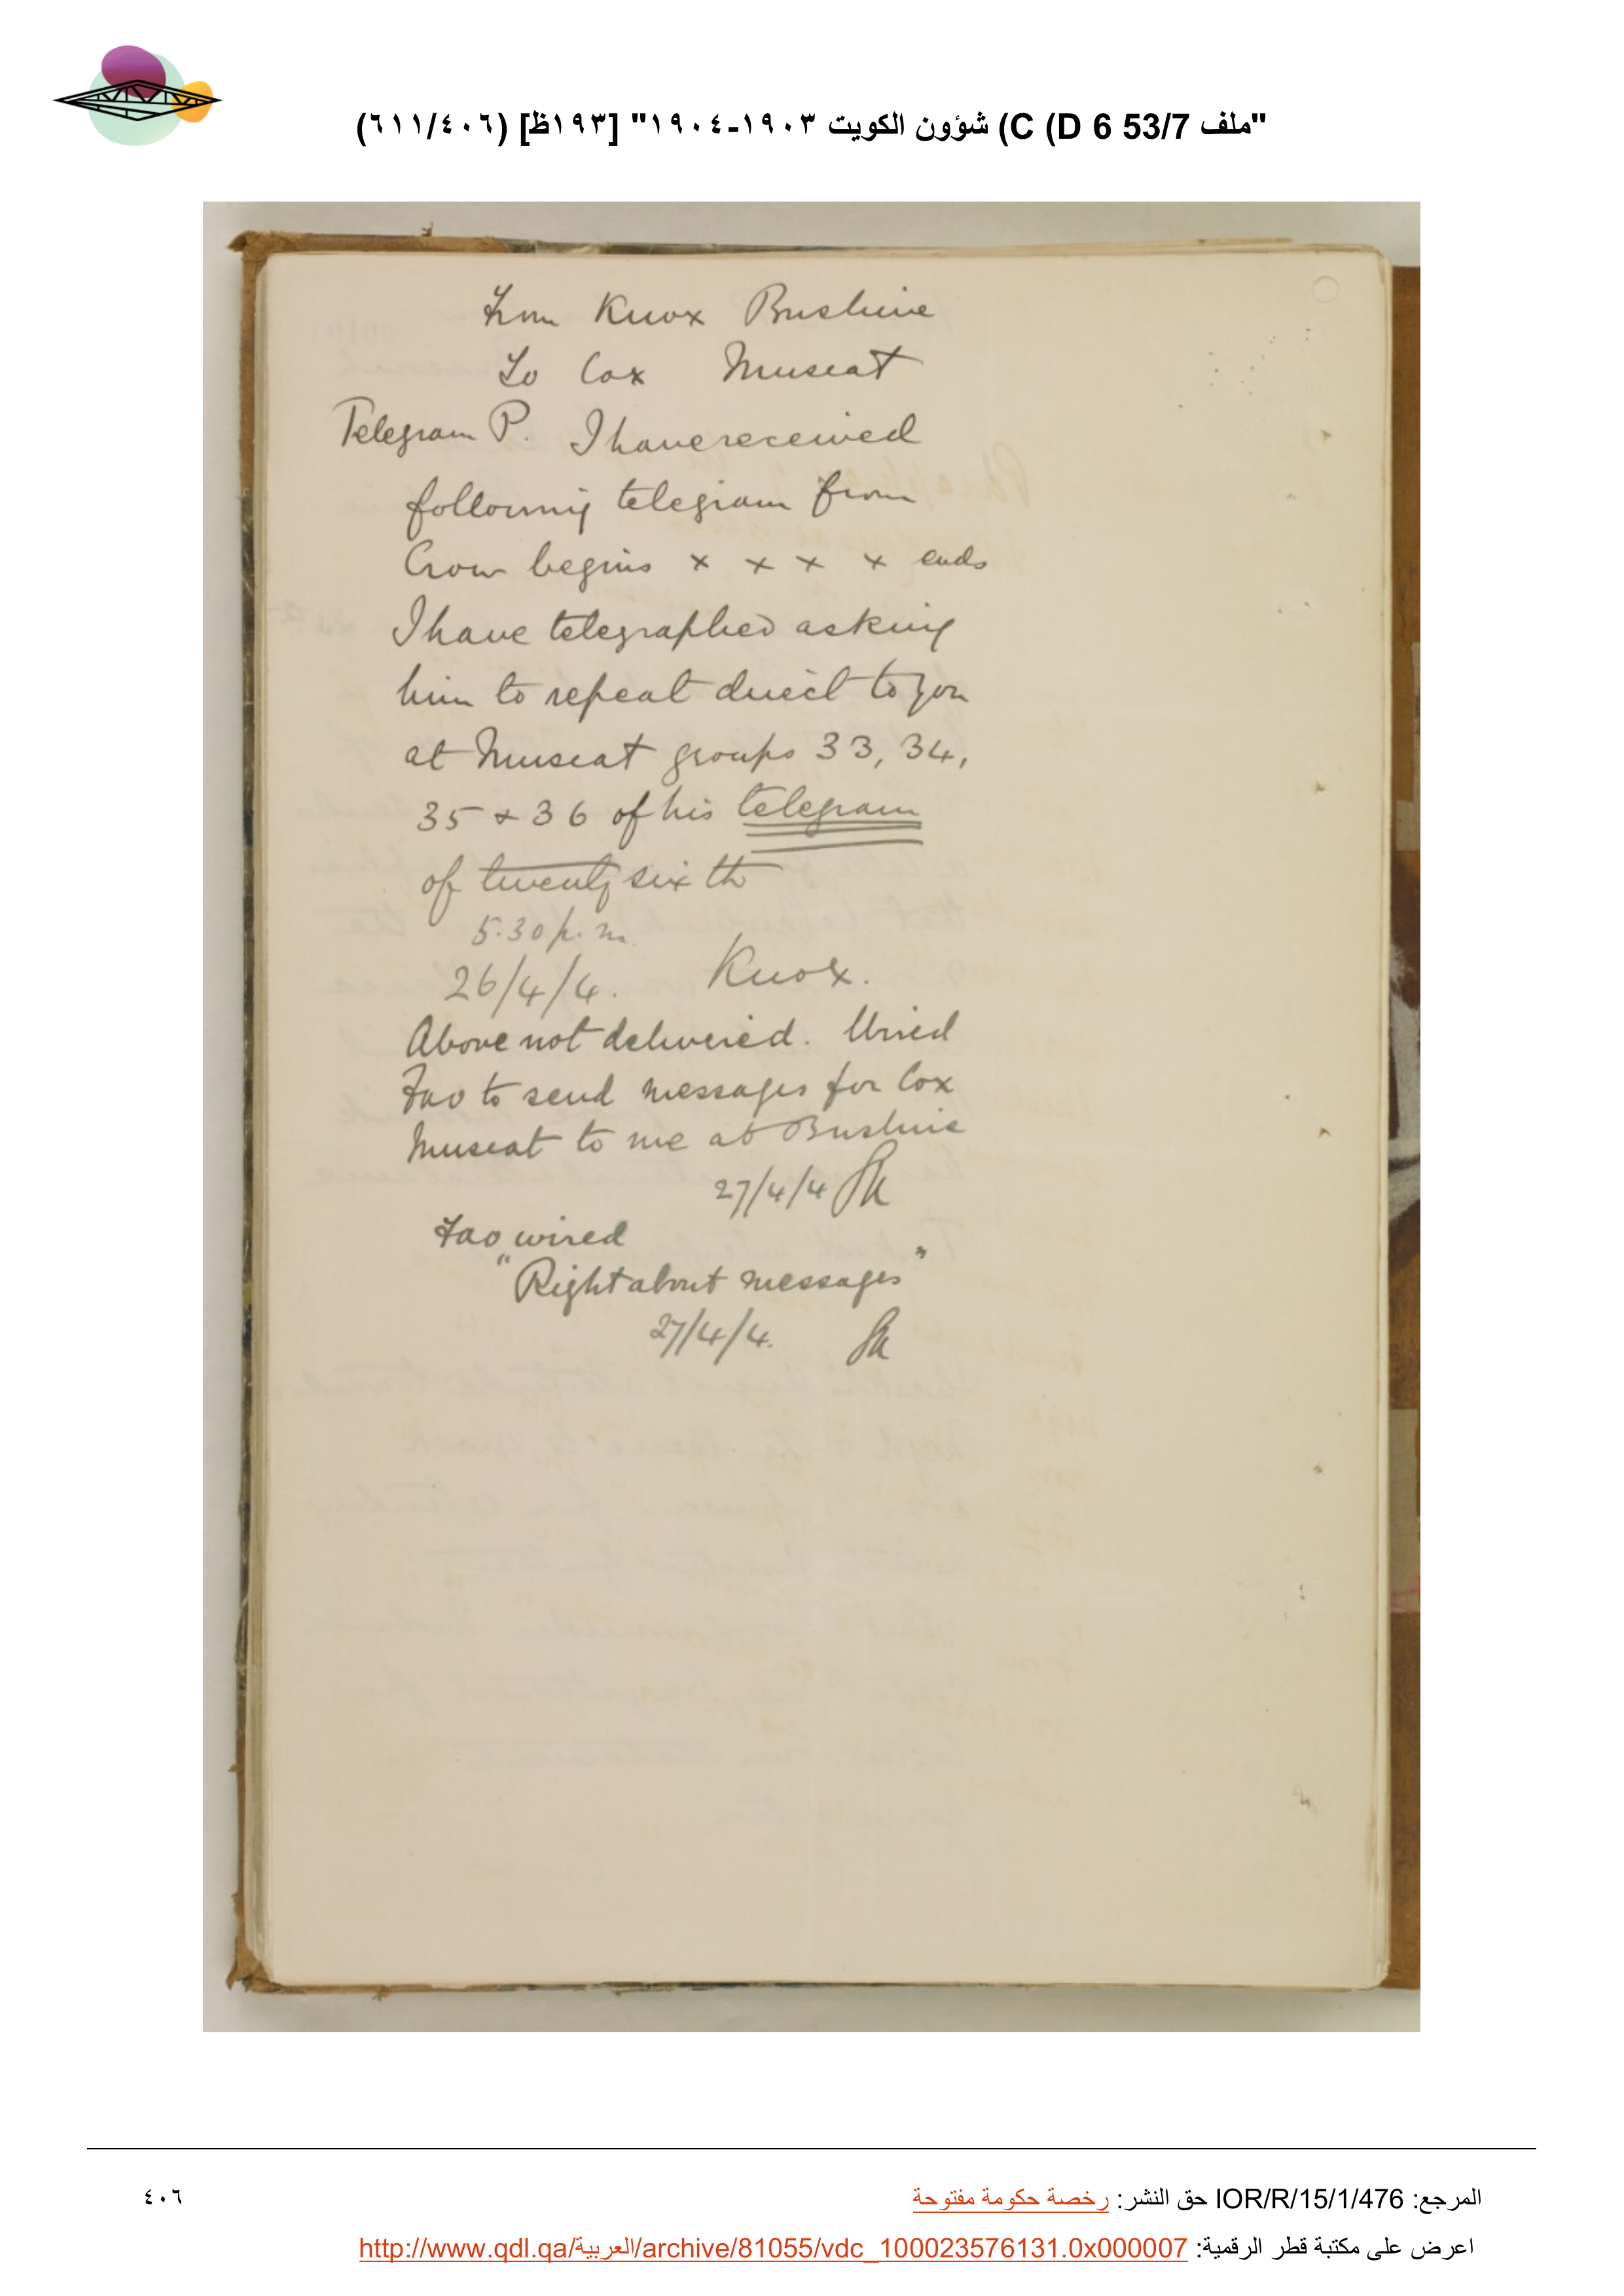 "ملف 53/7 C (D 6) شؤون الكويت ١٩٠٣-١٩٠٤" [١٩٣ظ] (٤٠٦/٦١١)
From Knox Bushire
To Cox Muscat
Telegram P. I have received
following telegram from
Crow begins x x x x ends
I have telegraphed asking
him to repeat direct to you
at Muscat groups 33, 34,
35 & 36 of his telegram
of twenty sixth
5.30 p.m.
26/4/4. Knox.
Above not delivered. Wired
Fao to send messages for Cox
Muscat to me at Bushire
27/4/4
Fao wired
"Right about messages"
27/4/4.
المرجع: IOR/R/15/1/476 حق النشر: رخصة حكومة مفتوحة
٤٠٦
اعرض على مكتبة قطر الرقمية: http://www.qdl.qa/العربية/archive/81055/vdc_100023576131.0x000007